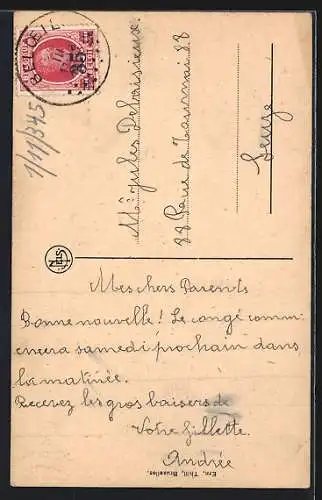 BELŒIL
1/11/345
Mr Jules Debaisieux
88 Rue de Tournai 88
Leuze
NELS
Mes chers Parents
Bonne nouvelle! Le congé comm-
encera samedi prochain dans
la matinée.
Recevez les gros baisers de
Votre fillette.
Andrée
Ern. Thill, Bruxelles.